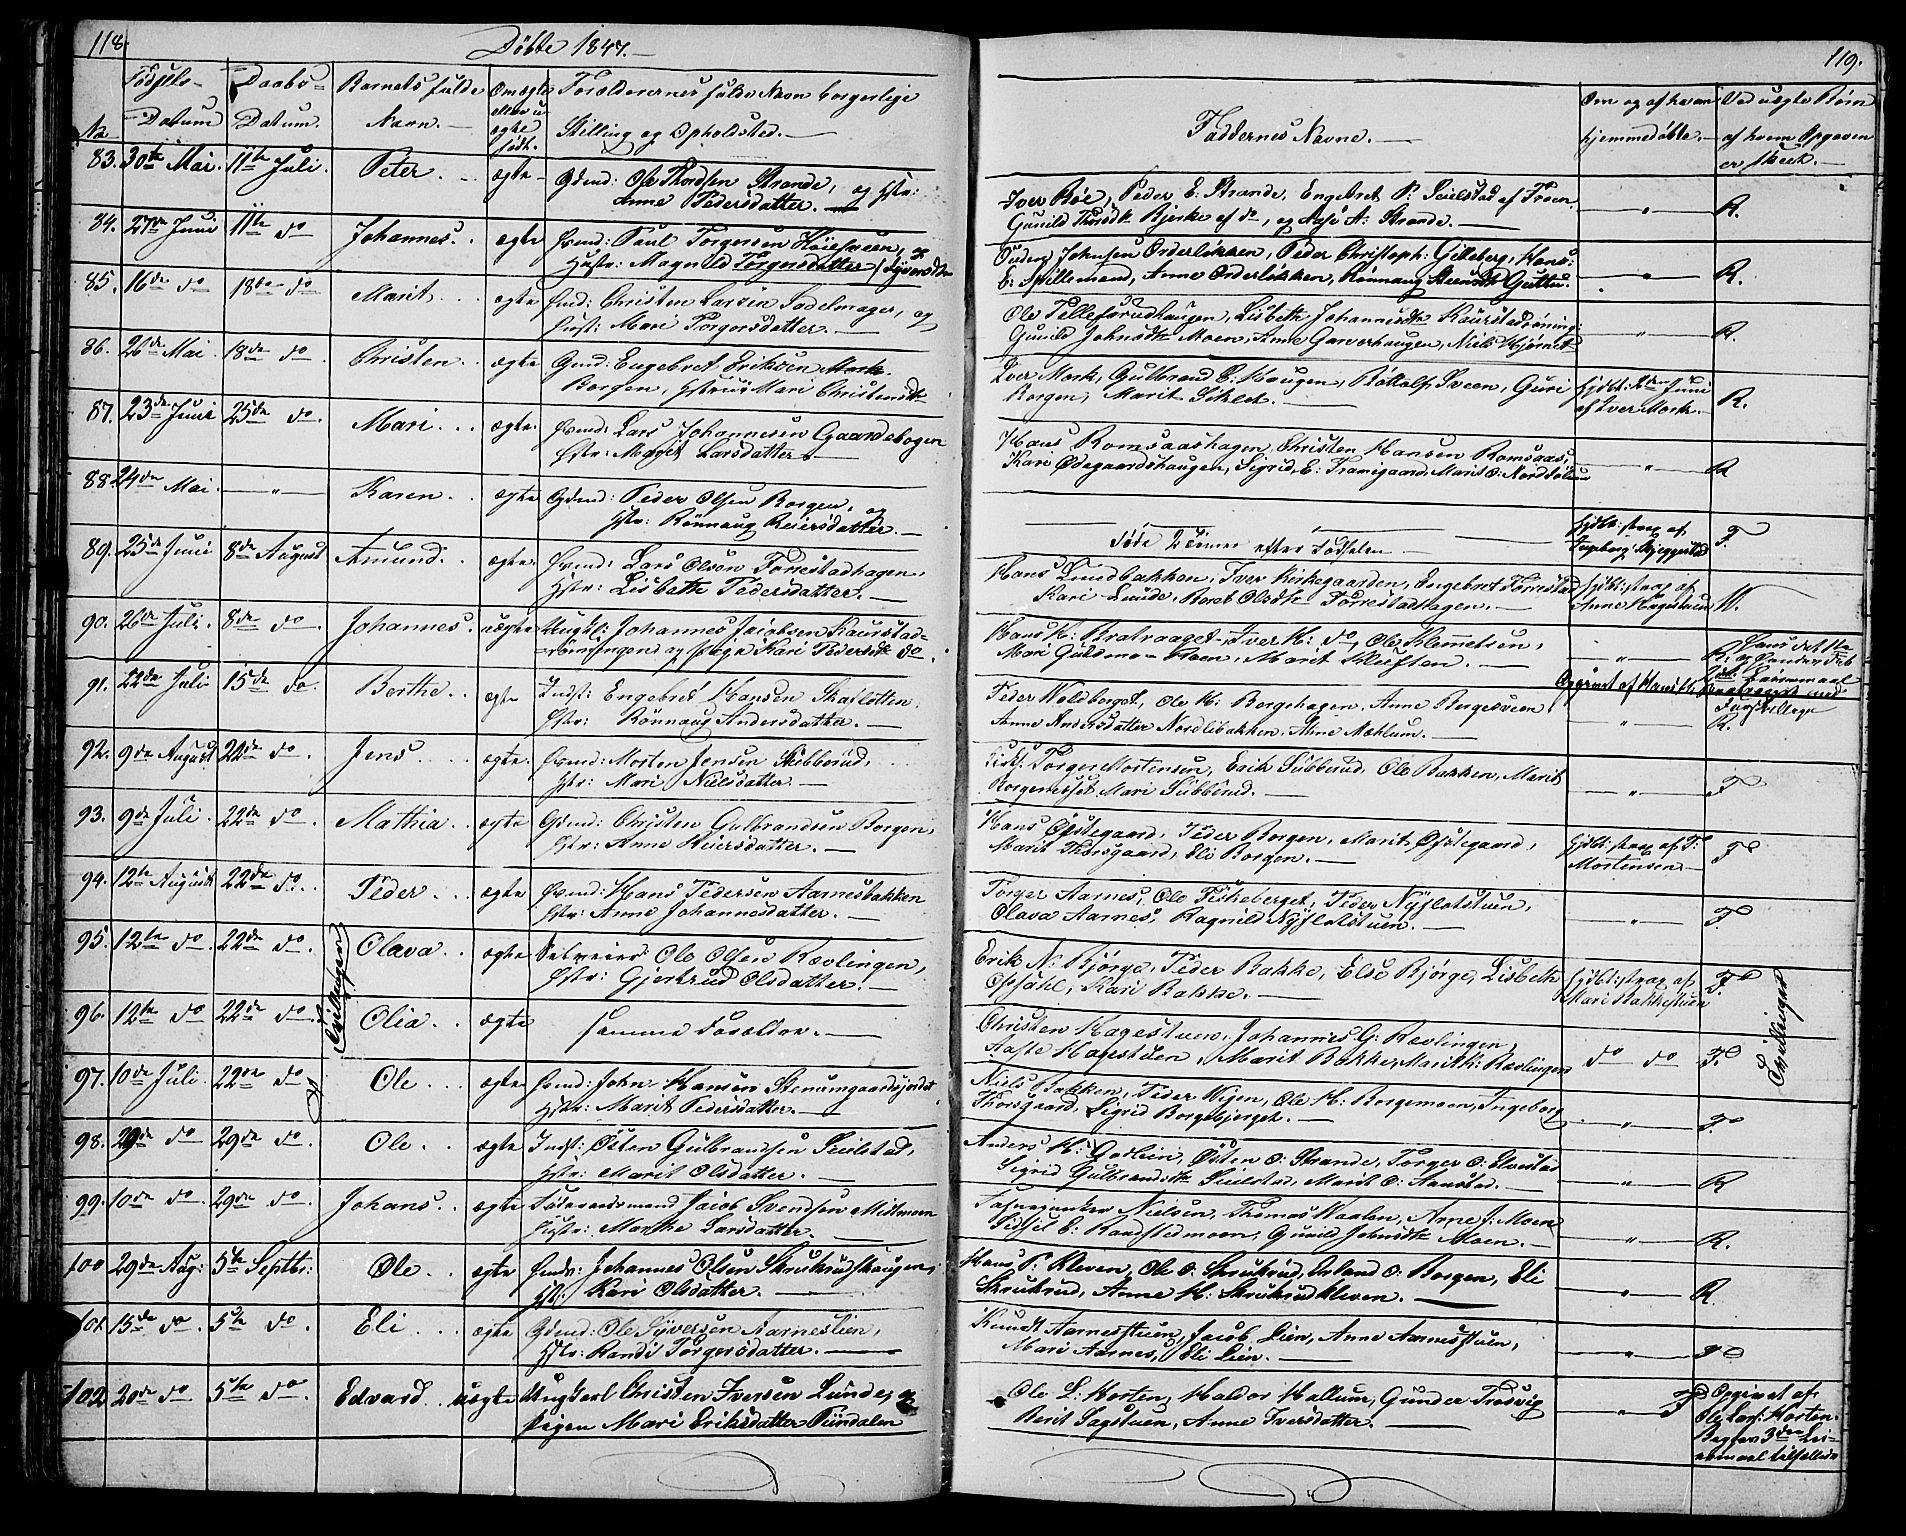 118.
Döbte 1847.
Födsels-
Datum
No
Daabs-
Datum.
Barnets fulde
Navn.
Om ægte
eller u
ægte
födt.
Forældrernes fulde Navn borgerlige
Stilling og Opholdsted.
83. 30te Mai. 11te Juli Peter ægte Gdmd: Ole Thordsen Strande, og Hstr:
Anne Pedersdatter.
84. 27de Juni 11te do Johannes. ægte Hmd: Paul Torgersen Höiesveen, og
Hustr: Magnild Torgersdatter
85. 16de do 18de do Marit ægte Hmd: Christen Larsen Sadelmager, og
Hust: Mari Torgersdatter.
86. 26de Mai 18de do Christen ægte Gmd: Engebret Eriksen
Borgen, Hstru Mari Christensdt
87. 23de Juni 25de do Mari ægte Hmd: Lars Johannesen Gaardebogen
Hstr: Magit Larsdatter
88. 24de Mai. — " — Karen ægte Gdmd: Peder Olsen Borgen, og
Hstr: Rönnaug Reiersdatter.
89. 25de Juni 8de August Amund ægte Hmd: Lars Olsen Torrestadhagen,
Hstr: Lisbeth Pedersdatter.
90. 26de Juli 8de do Johannes. uægte Ungkl: Johannes Jacobsen Kaurstad-
rönningen og Pige Kari Pedersdt do
91. 22de Juli 15de do Berthe ægte Indst: Engebret Hansen Skaflotten
Hstr: Rönnaug Andersdatter.
92. 9de August 22de do Jens ægte Hmd: Morten Jensen Sibberud,
Hstr: Mari Nielsdatter.
93. 9de Juli 22de do Mathia ægte Gdmd: Christen Gulbrandsen Borgen,
Hstr: Anne Reiersdatter.
94. 12te August 22de do Peder ægte Hmd: Hans Pedersen Aarnesbakken
Hstr: Anne Johannesdatter.
95. 12te do 22de do Olava ægte Selveier Ole Olsen Rævlingen,
Hstr: Gjertrud Olsdatter.
Tvillinger
96. 12te do 22de do Olia ægte samme Forældre.
97. 10de Juli 22de do Ole ægte Hmd: John Hansen Stenumgaardsjordet
Hstr: Marit Pedersdatter.
98. 29de do 29de do Ole ægte Indst: Östen Gulbrandsen Seielstad,
Hstr: Marit Olsdatter.
99. 10de do 29de do Johans ægte Föderaadsmand Jacob Svendsen Midtmoen
Hustr: Marthe Larsdatter.
100 29de Aug: 5te Septbr: Ole ægte Hmd: Johannes Olsen Skrukrudhaugen,
Hstr: Kari Olsdatter.
101. 15de do 5te do Eli ægte Gdmd: Ole Syversen Aarneslien,
Hstr: Randi Torgersdatter.
102. 20de do 5te do Edvard uægte Ungkarl Christen Iversen Lunde, og
Pigen Mari Eriksdatter Tundalen
119.
Faddernes Navne.
Om og af hvem
hjemmedöbte.
Ved uægte Börn
af hvem Opgaven
er skeet.
Iver Röe, Peder E: Strande, Engebret P: Seielstad af Froen,
Gunild Thorsdt Bjerke af do, og Aase A: Strande. — " — R.
Johnsen Orderlökken, Peder Christoph: Gilleberg, Hans
E: Spillemand, Anne Orderlökken, Rönnaug Steensdt Guttu. " R.
Ole Pellesrudhaugen, Lisbeth Johannesdt Kaurstadröning:
Gunild Johnsdt Moen, Anne Garverhaugen, Niels Hjörnet " R.
Iver Mork, Gulbrand E: Haugen, Rottolf Sveen, Guri
Borgen, Marit Sikle. hjdbt: 2den Juni
af Iver Mork. R.
Hans Romsaashagen, Christen Hansen Romsaas,
Kari Ödegaardshaugen, Sigrid E: Framigaard, Marit O: " R
Döde 2 Timer efter Födselen hjdbt: strax af
Ingeborg F.
Hans Lundbakken, Iver Kirkegaarden, Engebret Torrestad
Kari Lunde, Beret Olsdt Torrestadhagen. hjdbt: strax af
Anne Hagestuen
Hans H: Bratvaaget, Iver H: do, Ole Klemetsen,
Mari Guldsmed-Moen, Marit Kleiften. "
Opgivet af Hans H: Bratvaaget
Peder Wolberget, Ole H: Borgehagen, Anne Borgesveen
Anne Andersdatter Nordlibakken, Anne Mæhlum. " R.
Torger Mortensen, Erik Sibberud, Ole Bakken, Marit
Borgenesset, Mari Sibberud. " F
Hans Opstegaard, Peder Borgen, Marit Opstegaard,
Marit Thorsgaard, Eli Borgen. hjdbt: strax af T:
Mortensen F
Torger Aarnes, Ole Fiskeberget, Peder Nyflotstuen,
Olava Aarnes, Ragnild Nyflotstuen. " F.
Erik N: Björge, Peder Bakke, Else Björge, Lisbeth
Opsahl, Kari Bakke. hjdbt: strax af
Mari Bakkestuen F.
Tvillinger
Christen Hagestuen, Johannes G: Rævlingen,
Aaste Hagestuen, Marit Bakke, Marit K: Rævlingen do do F.
Niels Bakken, Peder Wijen, Ole H: Borgemoen, Ingeborg
Thorsgaard, Sigrid Borgebjerget. " F.
Anders H: Godlien, Östen O: Strande, Torger O: Elvestad
Sigrid Gulbrandsdt Seielstad, Marit O: Aanstad. " R
Nielsen, Thomas Waalen, Arne J: Moen
Sidsel E: Randstedmoen, Gunild Johnsdt Moen. " R.
Hans P: Kleven, Ole O: Skrukrud, Erland O: Borgen, Eli
Skrukrud, Anne H: Skrukrudkleven. " R.
Knudt Aarnesstuen, Jacob Lien, Anne Aarnesstuen,
Mari Aarnes, Eli Lien. " F
Ole L: Horten, Haldor Hallum, Gunder Trosvig
Berit Sagstuen, Anne Iversdatter. " F Opgivet af
Ole Lars: Horten.
Begges 3die Lei-
ermaal tilfælles